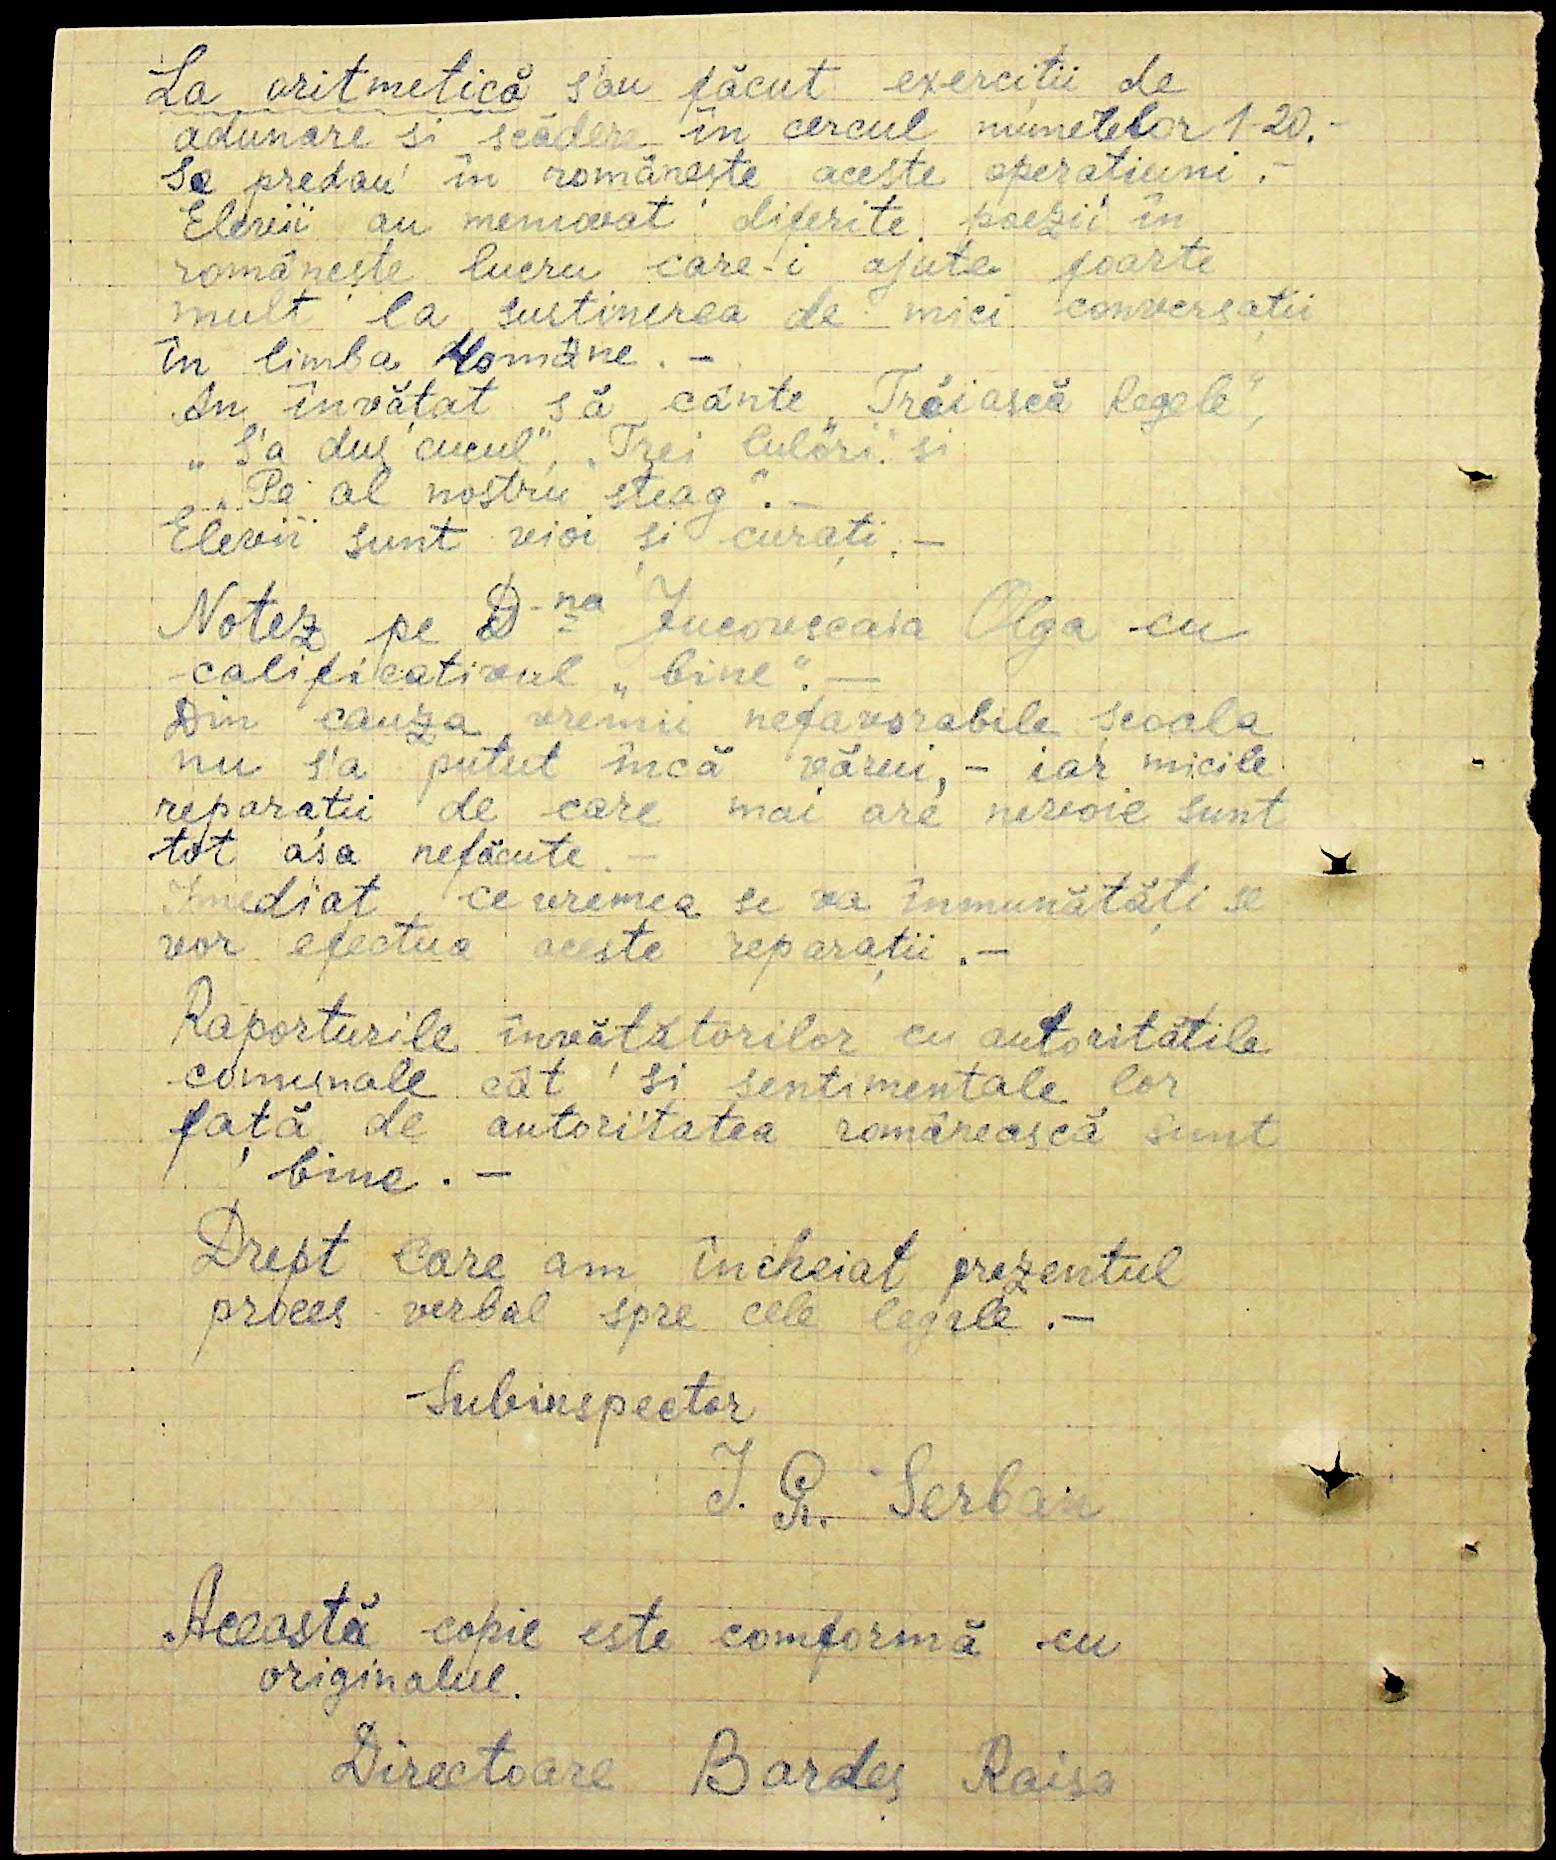 La aritmetică s'au făcut exerciții de
adunare si scădere în cercul numetelor 1-20.-
Se predau în românește aceste operatiuni.-
Elevii au memorat diferite poezii în
românește lucru care-i ajute foarte
mult la sustinerea de mici conversații
în limba Române.-
Au învățat să cânte „Trăiască Regele",
„S'a dus cucul", „Trei Culori" si
„Pe al nostru steag".-
Elevii sunt vioi și curați.-
Notez pe D-na Olga cu
calificativul „bine".-
Din cauza vremii nefavorabile școala
nu s'a putut încă vărui,- iar micile
reparatii de care mai are nevoie sunt
tot așa nefăcute.-
Imediat ce vremea se va înmunătăți se
vor efectua aceste reparații.-
Raporturile învătătorilor cu autoritătile
comunale cât și sentimentale lor
față de autoritatea românească sunt
bine.-
Drept care am încheiat prezentul
proces verbal spre cele legale.-
Subinspector
I. Gr. Serban
Aceastā copie este comformă cu
originalul.
Directoare Bardeș Raisa